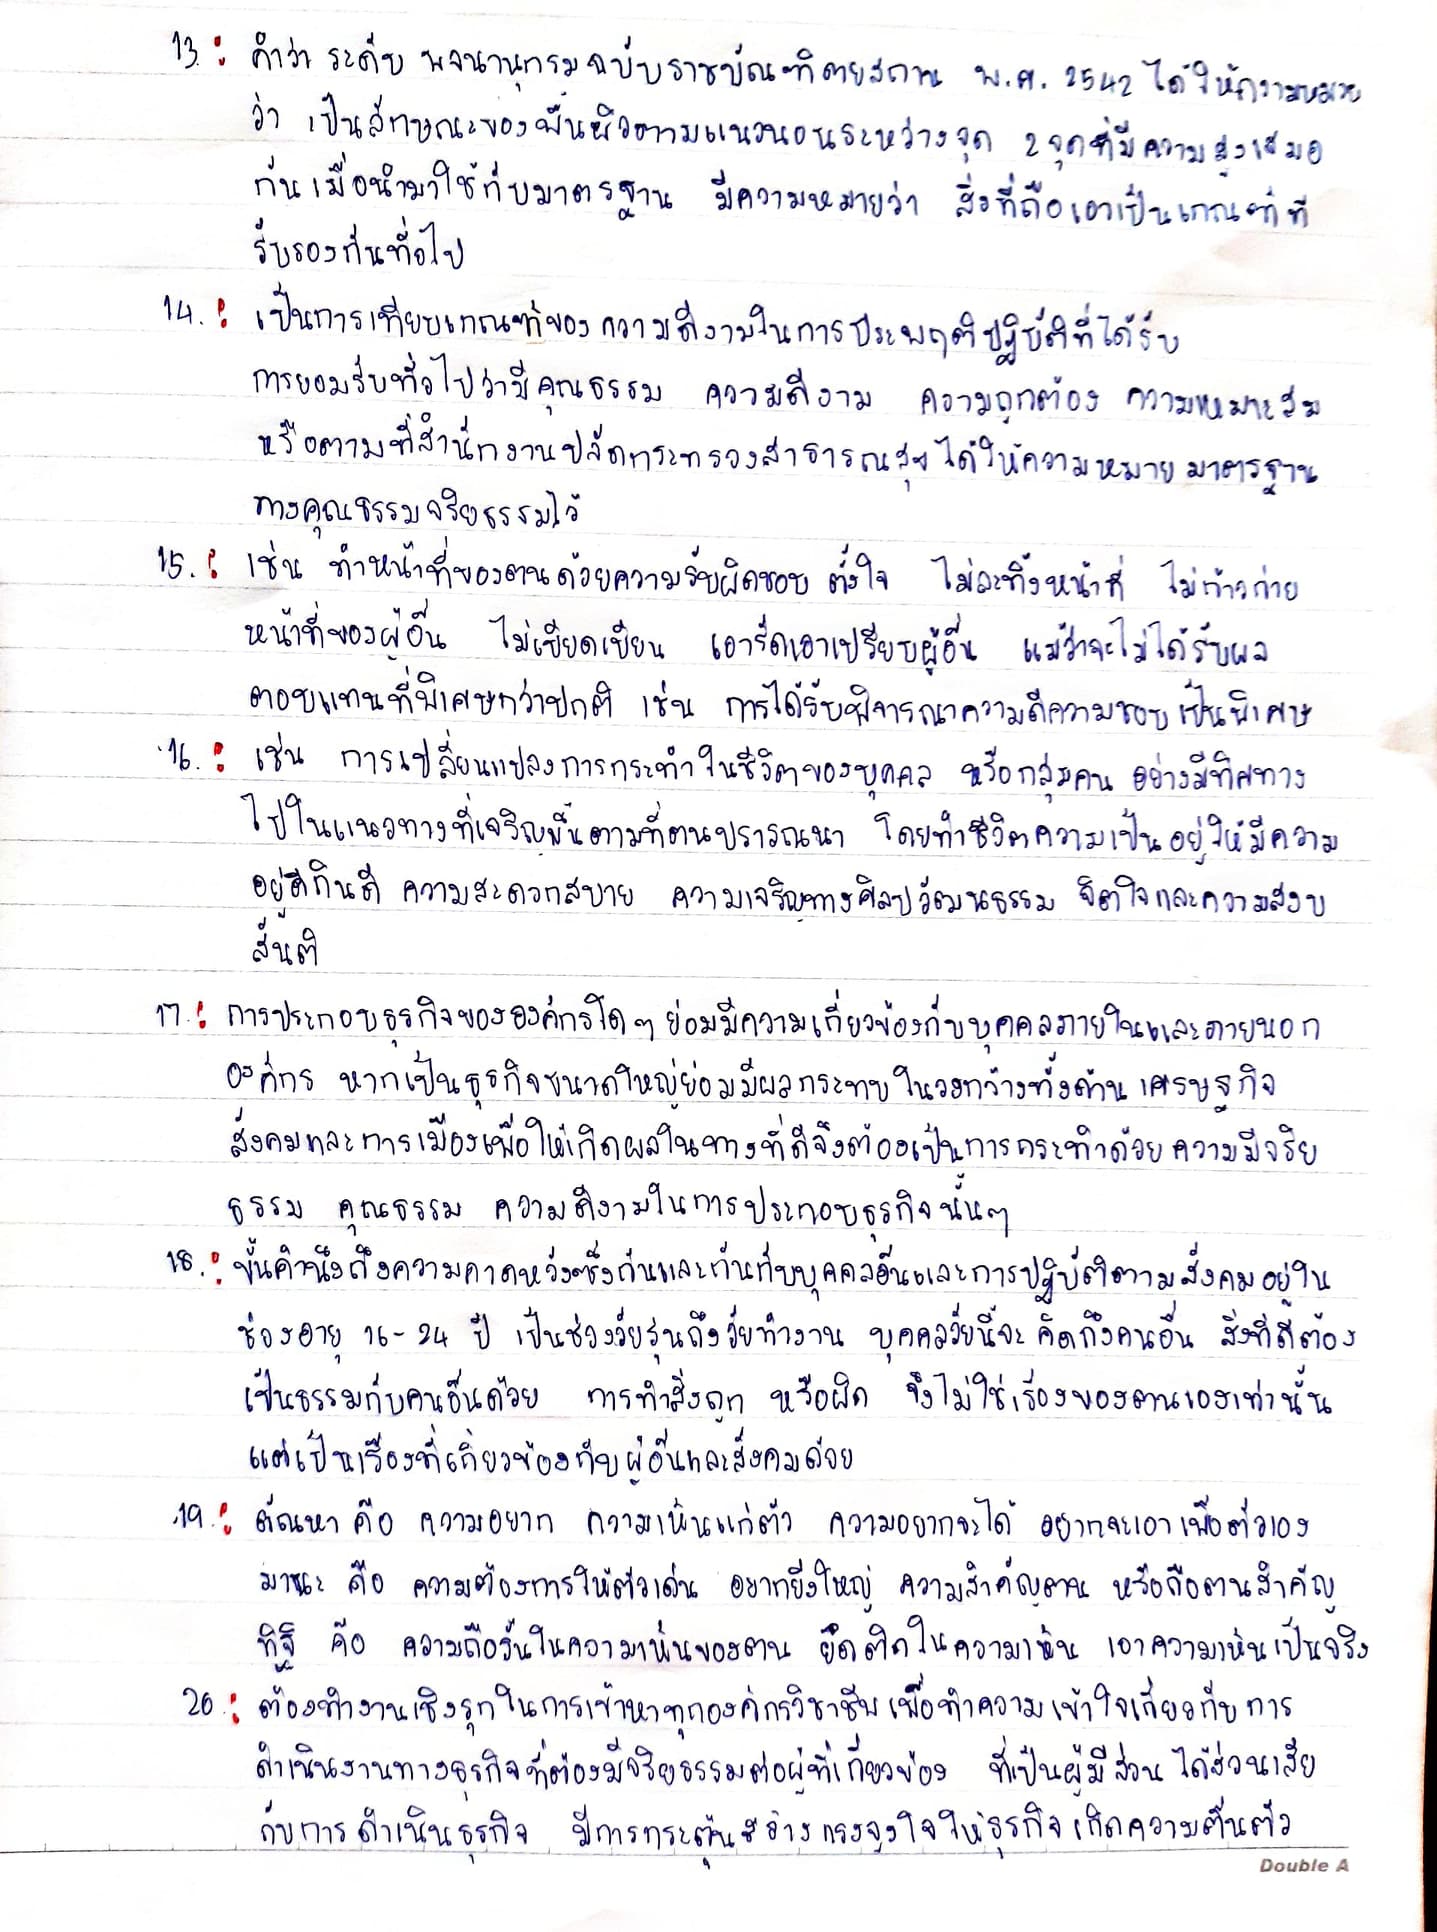 13. : คำว่า ระดับ พจนานุกรมฉบับราชบัณฑิตยสถาน พ.ศ. 2542 ได้ให้ความหมาย
ว่า เป็นลักษณะของพื้นผิวตามแนวนอนระหว่างจุด 2 จุดที่มีความสูงเสมอ
กันเมื่อนำมาใช้กับมาตรฐาน มีความหมายว่า สิ่งที่ถือเอาเป็นเกณฑ์ที่
รับรองกันทั่วไป
14. : เป็นการเทียบเกณฑ์ของความดีงามในการประพฤติปฏิบัติที่ได้รับ
การยอมรับทั่วไปว่ามีคุณธรรม ความดีงาม ความถูกต้อง ความเหมาะสม
หรือตามที่สำนักงานปลัดกระทรวงสาธารณสุข ได้ให้ความหมายมาตรฐาน
ทางคุณธรรมจริยธรรมไว้
15. : เช่น ทำหน้าที่ของตนด้วยความรับผิดชอบ ตั้งใจ ไม่ละทิ้งหน้าที่ ไม่ก้าวก่าย
หน้าที่ของผู้อื่น ไม่เบียดเบียน เอารัดเอาเปรียบผู้อื่น แม้ว่าจะไม่ได้รับผล
ตอบแทนที่พิเศษกว่าปกติ เช่น การได้รับพิจารณาความดีความชอบเป็นพิเศษ
16. : เช่น การเปลี่ยนแปลงการกระทำในชีวิตของบุคคล หรือกลุ่มคน อย่างมีทิศทาง
ไปในแนวทางที่เจริญขึ้นตามที่ตนปรารถนา โดยทำชีวิตความเป็นอยู่ให้มีความ
อยู่ดีกินดี ความสะดวกสบาย ความเจริญทางศิลปวัฒนธรรม จิตใจและความสงบ
สันติ
17. : การประกอบธุรกิจขององค์กรใดๆ ย่อมมีความเกี่ยวข้องกับบุคคลภายในและภายนอก
องค์กร หากเป็นธุรกิจขนาดใหญ่ย่อมมีผลกระทบในวงกว้างทั้งด้านเศรษฐกิจ
สังคมและการเมืองเพื่อให้เกิดผลในทางที่ดีจึงต้องเป็นการกระทำด้วยความมีจริย
ธรรม คุณธรรม ความดีงามในการประกอบธุรกิจนั้นๆ
18. : ขั้นคำนึงถึงความคาดหวังซึ่งกันและกันกับบุคคลอื่นและการปฏิบัติตามสังคมอยู่ใน
ช่วงอายุ 16-24 ปี เป็นช่วงวัยรุ่นถึงวัยทำงาน บุคคลวัยนี้จะคิดถึงคนอื่น สิ่งที่ดีต้อง
เป็นธรรมกับคนอื่นด้วย การทำสิ่งถูก หรือผิด จึงไม่ใช่เรื่องของตนเองเท่านั้น
แต่เป็นเรื่องที่เกี่ยวข้องกับผู้อื่นและสังคมด้วย
19. : ตัณหา คือ ความอยาก ความเห็นแก่ตัว ความอยากจะได้ อยากจะเอาเพื่อตัวเอง
มานะ คือ ความต้องการให้ตัวเด่น อยากยิ่งใหญ่ ความสำคัญตน หรือถือตนสำคัญ
ทิฐิ คือ ความถือรั้นในความเห็นของตน ยึดติดในความเห็น เอาความเห็นเป็นจริง
20 : ต้องทำงานเชิงรุกในการเข้าหาทุกองค์กรวิชาชีพเพื่อทำความเข้าใจเกี่ยวกับการ
ดำเนินงานทางธุรกิจที่ต้องมีจริยธรรมต่อผู้ที่เกี่ยวข้อง ที่เป็นผู้มีส่วนได้ส่วนเสีย
กับการดำเนินธุรกิจ มีการกระตุ้นสร้างแรงจูงใจให้ธุรกิจเกิดความตื่นตัว
Double A